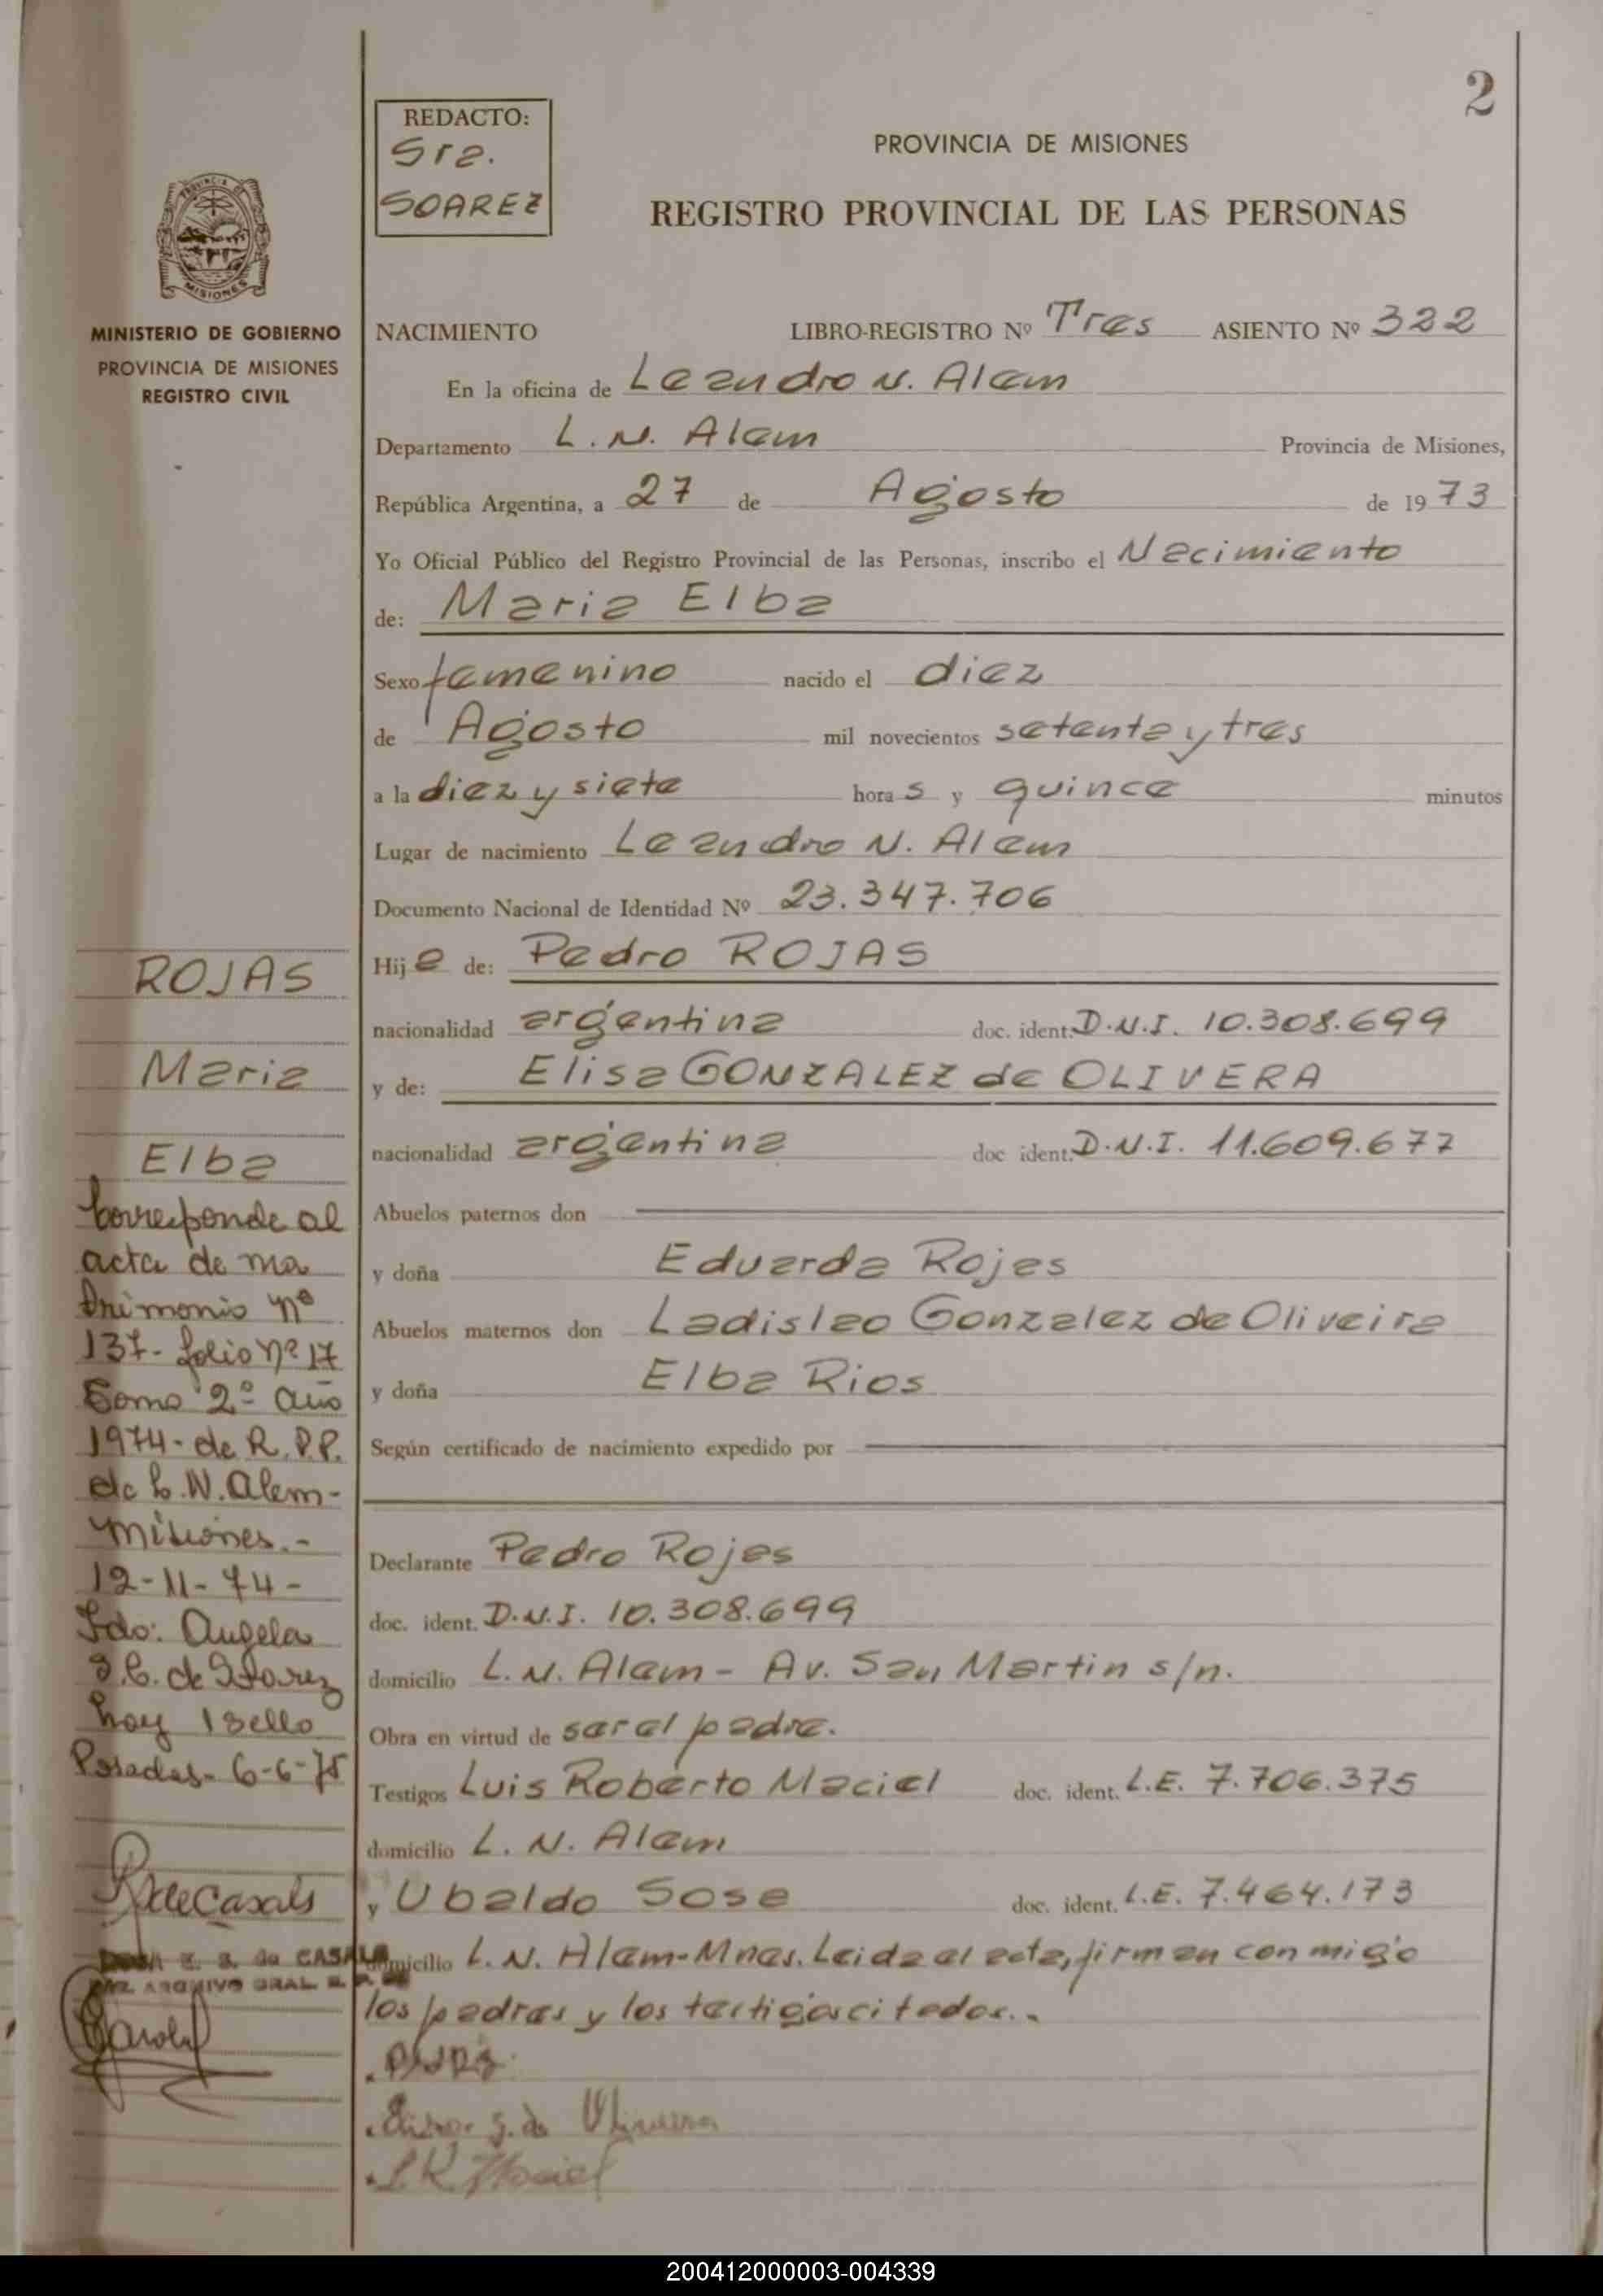 2
REDACTO:
Sra.
SOAREZ
PROVINCIA DE MISIONES
REGISTRO PROVINCIAL DE LAS PERSONAS
PROVINCIA DE
MISIONES
MINISTERIO DE GOBIERNO
PROVINCIA DE MISIONES
REGISTRO CIVIL
NACIMIENTO LIBRO-REGISTRO Nº Tres ASIENTO Nº 322
En la oficina de Leandro N. Alem
Departamento L. N. Alem Provincia de Misiones,
República Argentina, a 27 de Agosto de 1973
Yo Oficial Público del Registro Provincial de las Personas, inscribo el Nacimiento
de: Maria Elba
Sexo femenino nacido el diez
de Agosto mil novecientos setenta y tres
a la diez y siete horas y quince minutos
Lugar de nacimiento Leandro N. Alem
Documento Nacional de Identidad Nº 23.347.706
Hija de: Pedro ROJAS
nacionalidad argentina doc. ident. D.N.I. 10.308.699
y de: Elisa GONZALEZ de OLIVERA
nacionalidad argentina doc ident. D.N.I. 11.609.677
Abuelos paternos don
y doña Eduarda Rojas
Abuelos maternos don Ladislao Gonzalez de Oliveira
y doña Elba Rios
Según certificado de nacimiento expedido por
Declarante Pedro Rojas
doc. ident. D.N.I. 10.308.699
domicilio L. N. Alem - Av. San Martin s/n.
Obra en virtud de ser el padre.
Testigos Luis Roberto Maciel doc. ident. L.E. 7.706.375
domicilio L. N. Alem
y Ubaldo Sosa doc. ident. L.E. 7.464.173
domicilio L. N. Alem-Mnes. Leida el acta, firman conmigo
los padres y los testigos citados..
Elisa g. de Oliveira
L R Maciel
ROJAS
Maria
Elba
Corresponde al
acta de ma
trimonio nº
137- folio nº 17
Tomo 2º año
1974- de R.P.P.
de L.N. Alem-
Misiones.-
12-11-74-
Fdo: Angela
de
hay 1 sello
Posadas- 6-6-75
de Casals
de CASALS
ARCHIVO GRAL
200412000003-004339